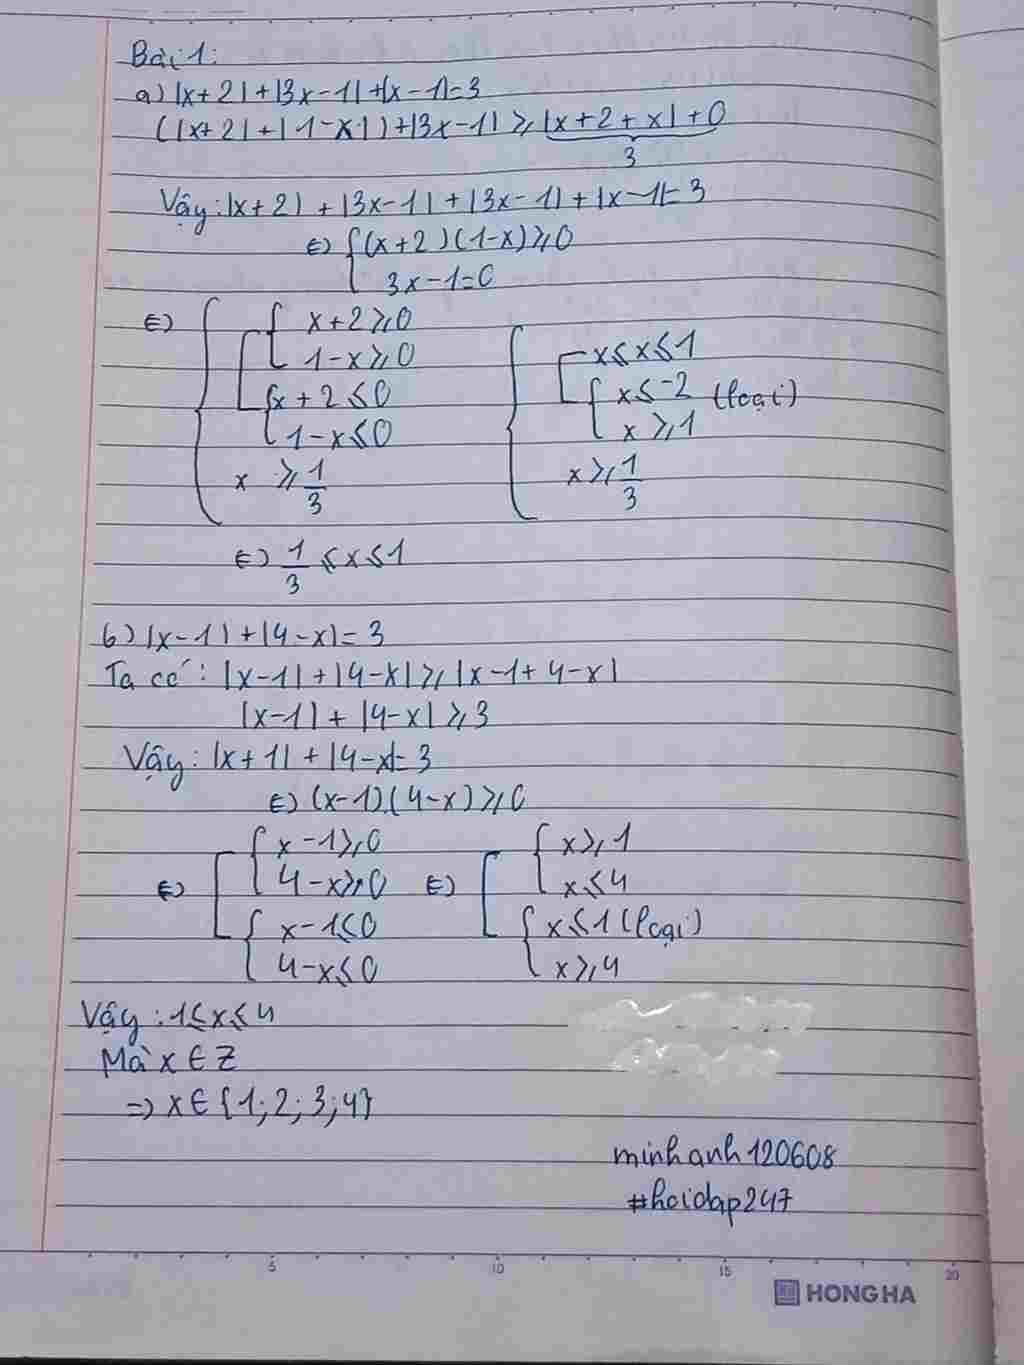 Bài 1:
a) |x+2|+|3x-1|+|x-1|=3
(|x+2|+|1-x|)+|3x-1| ⩾ |x+2+x|+0
3
Vậy: |x+2| + |3x-1|+|3x-1|+|x-1|=3
⇔ { (x+2)(1-x)⩾0
3x-1=0
⇔ { [ { x+2⩾0 { [ x⩽x⩽1
1-x⩾0 { x⩽-2 (loại)
{ x+2⩽0 x⩾1
1-x⩽0 x⩾1/3
x ⩾ 1/3
⇔ 1/3 ⩽x⩽1
b) |x-1|+|4-x|=3
Ta có: |x-1|+|4-x|⩾|x-1+4-x|
|x-1|+|4-x|⩾3
Vậy: |x+1|+|4-x|=3
⇔ (x-1).(4-x)⩾0
⇔ [ { x-1⩾0 ⇔ [ { x⩾1
4-x⩾0 x⩽4
{ x-1⩽0 { x⩽1 (loại)
4-x⩽0 x⩾4
Vậy: 1⩽x⩽4
Mà x∈Z
⇒ x∈{1;2;3;4}
minhanh120608
#hoidap247
5 10 15 20
HONG HA